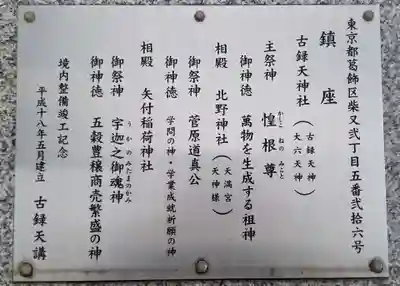 東京都葛飾区柴又弐丁目五番弐拾六号
鎮座
古録天神社(古録天神 大六天神)
主祭神 惶根尊
かしこ ねの みこと
御神徳 萬物を生成する祖神
相殿 北野神社(天満宮 天神様)
御祭神 菅原道真公
御神徳 学問の神・学業成就祈願の神
相殿 矢付稲荷神社
御祭神 宇迦之御魂神
うかのみたまのかみ
御神徳 五穀豊穣商売繁盛の神
境内整備竣工記念
平成十八年五月建立 古録天講